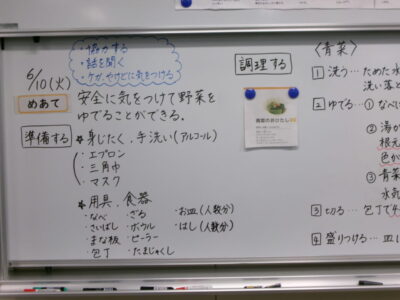 ・協力する
・話を聞く
・ケガ、やけどに気をつける
6/10(火)
めあて
安全に気をつけて野菜を
ゆでることができる。
準備する
身じたく、手洗い(アルコール)
・エプロン
・三角巾
・マスク
用具、食器
・なべ ・ざる ・お皿(人数分)
・さいばし ・ボウル ・はし(人数分)
・まな板 ・ピーラー
・包丁 ・たまじゃくし
調理する
青菜のおひたし
〈青菜〉
1 洗う…ためた水
洗い落と
2 ゆでる…①なべに
②湯が
根元
色が
③青菜
水気
3 切る…包丁で4
4 盛りつける…皿に